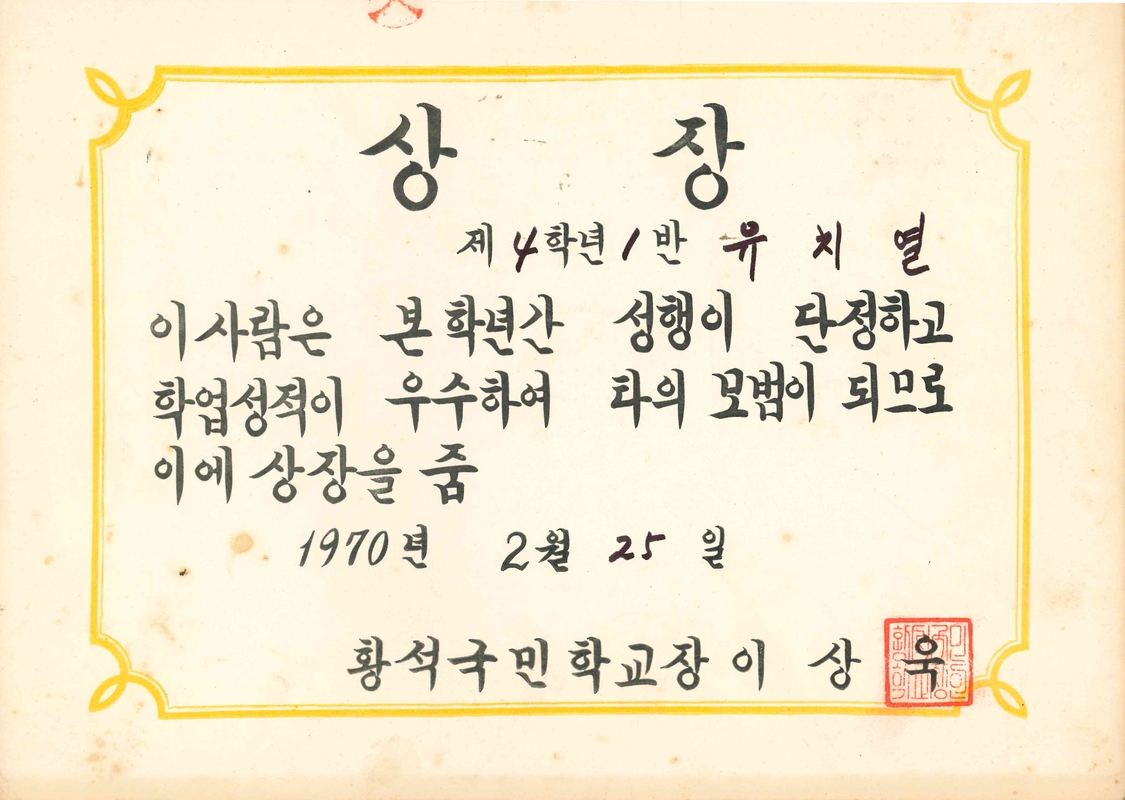 상 장
제 4 학년 1 반 유 치 열
이 사람은 본 학년간 성행이 단정하고
학업성적이 우수하여 타의 모범이 되므로
이에 상장을 줌
1970년 2월 25일
황석국민학교장 이 상 욱